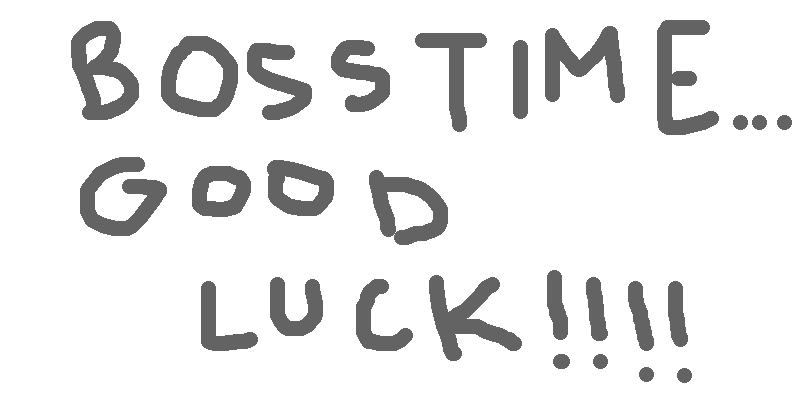 BOSSTIME...
GOOD
LUCK!!!!